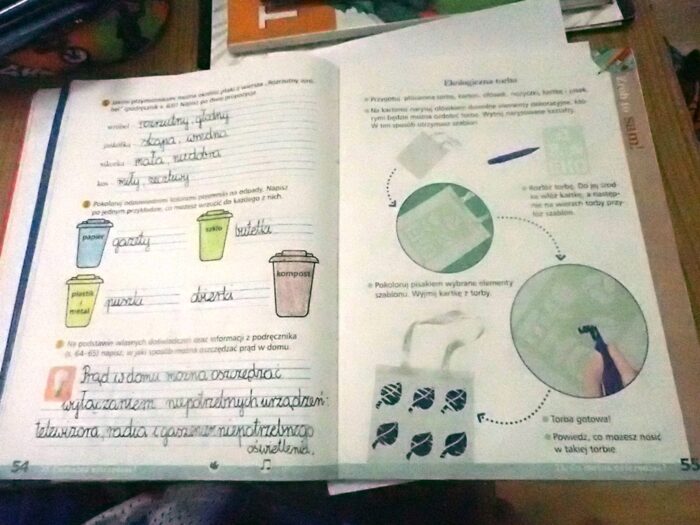 Jakimi przymiotnikami można określić ptaki z wiersza
(podręcznik s. 63)? Napisz po dwie propozycje.
wróbel rozrzutny, głodny
jaskółka skąpa, wredna
sikorka mała, niedobra
kos miły,
Pokoloruj odpowiednimi kolorami pojemniki na odpady. Napisz
po jednym przykładzie, co możesz wrzucić do każdego z nich.
papier
gazety
szkło
butelki
plastik
i
metal
puszki
kompost
Na podstawie własnych doświadczeń oraz informacji z podręcznika
(s. 64–65) napisz, w jaki sposób można oszczędzać prąd w domu.
Prąd w domu można oszczędzać
wyłączaniem niepotrzebnych urządzeń:
telewizora, radia i gaszenie niepotrzebnego
oświetlenia.
54
Ekologiczna torba
Przygotuj: płócienną torbę, karton, ołówek, nożyczki, kartkę i pisak.
Na kartonie narysuj ołówkiem dowolne elementy dekoracyjne, któ-
rymi będzie można ozdobić torbę. Wytnij narysowane kształty.
W ten sposób otrzymasz szablon.
Rozłóż torbę. Do jej środ-
ka włóż kartkę, a następ-
nie na wierzch torby przy-
łóż szablon.
Pokoloruj pisakiem wybrane elementy
szablonu. Wyjmij kartkę z torby.
Torba gotowa!
Powiedz, co możesz nosić
w takiej torbie.
55
Zrób to sam!